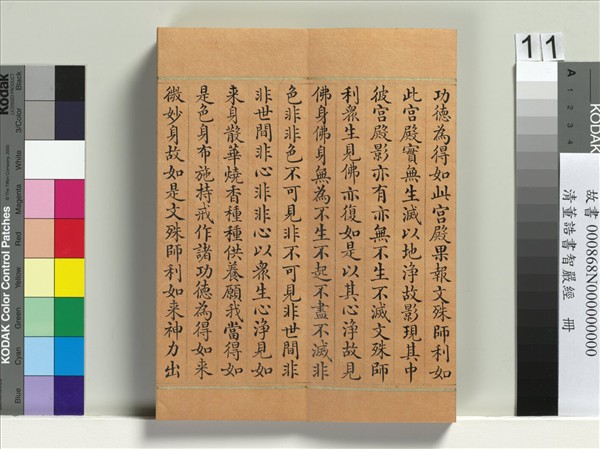 功德為得如此宮殿果報文殊師利如
此宮殿實無生滅以地淨故影現其中
彼宮殿影亦有亦無不生不滅文殊師
利眾生見佛亦復如是以其心淨故見
佛身佛身無為不生不起不盡不滅非
色非非色不可見非不可見非世間非
非世間非心非非心以眾生心淨見如
來身散華燒香種種供養願我當得如
是色身布施持戒作諸功德為得如來
微妙身故如是文殊師利如來神力出
11
A 1 2 3 4
KODAK
故書 000868N000000000
清董誥書智嚴經 冊
Kodak
KODAK Color Control Patches
Blue Cyan Green Yellow Red Magenta White 3/Color Black